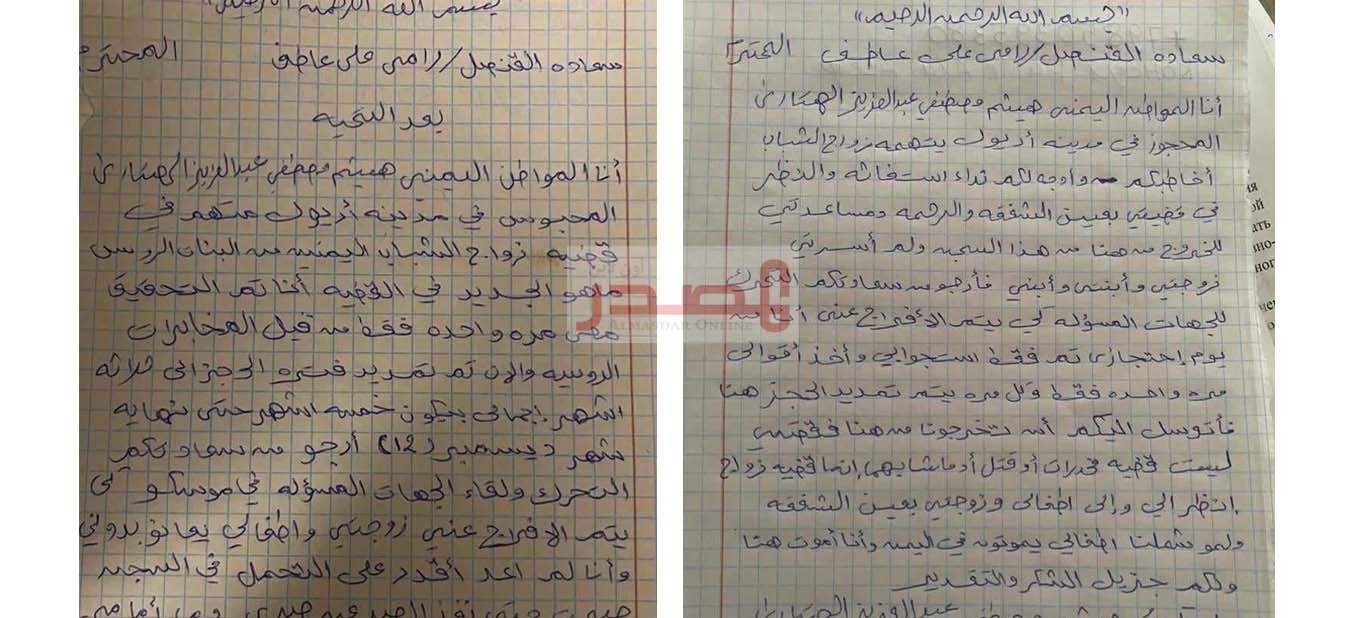 بسم الله الرحمن الرحيم
سعاده القنصل/رامي علي عاطف المحترم
بعد التحيه
أنا المواطن اليمني هيثم مصطفى عبدالعزيز الهصاري
المحبوس في مدينه أزيول متهم في
قضيه زواج الشباب اليمنيه من البنات الروس
ماهو الجديد في القضيه أنا تم التحقيق
معي مره واحده فقط من قبل المخابرات
الروسيه والان تم تمديد فتره الحجز الى ثلاثه
اشهر إجمالي بيكون خمسه اشهر حتى نهايه
شهر ديسمبر (12) أرجو من سعادتكم
التحرك ولقاء الجهات المسؤله في موسكو كي
يتم الافراج عني زوجتي واطفالي يعانو بدوني
وأنا لم اعد أقدر على التحمل في السجن
"بسم الله الرحمن الرحيم"
سعاده القنصل/رامي علي عاطف المحترم
أنا المواطن اليمني هيثم مصطفى عبدالعزيز الهصاري
المحجوز في مدينه أزيول بتهمه زواج الشباب
أخاطبكم وأوجه لكم نداء استغاثه والنظر
في قضيتي بعين الشفقه والرحمه ومساعدتي
للخروج من هنا من هذا السجن ولم أسرتي
زوجتي وأبنتي وأبني فأرجو من سعادتكم التحرك
للجهات المسؤله لكي يتم الأفراج عني أنا من
يوم إحتجازي تم فقط استجوابي وأخذ أقوالي
مره واحده فقط وكل مره يتم تمديد الحجز هنا
فأتوسل اليكم أن تخرجونا من هنا فقضيتي
ليست قضيه مخدرات أو قتل أو ماشابهها إنما قضيه زواج
انتظر الي وإلى اطفالي وزوجتي بعين الشفقه
ولمو شملنا اطفالي يموتون في اليمن وأنا أموت هنا
ولكم جزيل الشكر والتقدير
المصدر
أون لاين
ALMASDAR ONLINE